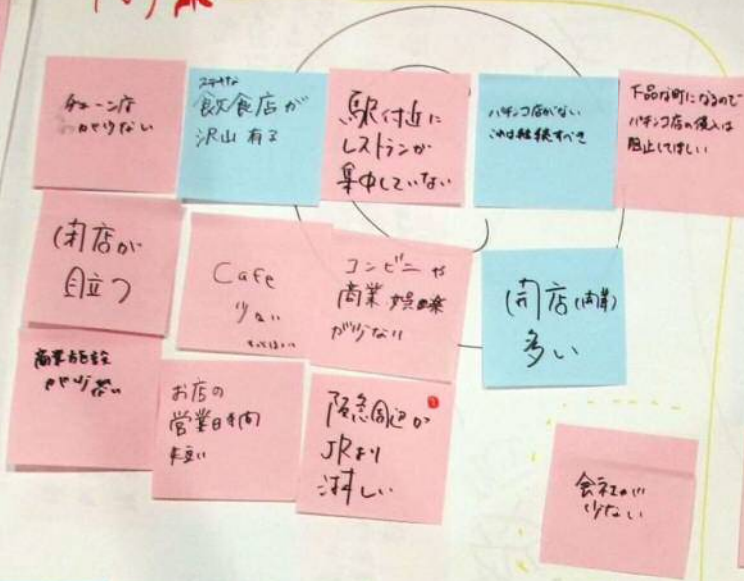 チェーン店
が少ない
ステキな
飲食店が
沢山有る
駅付近に
レストランが
集中していない
パチンコ店がない
これは継続すべき
下品な町になるので
パチンコ店の侵入は
阻止してほしい
閉店が
目立つ
Cafe
少ない
コンビニや
商業 娯楽
が少ない
閉店(商業)
多い
商業施設
がやや少ない
お店の
営業時間
短い
阪急周辺が
JRより
淋しい
会社が
少ない